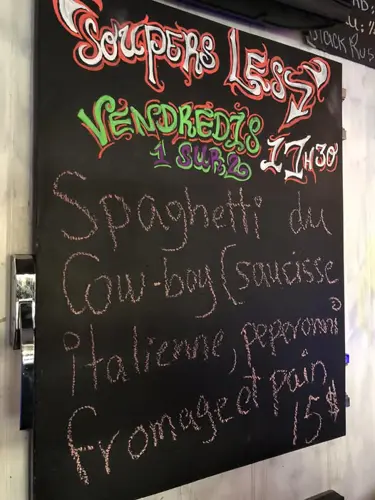 SOUPERS LESS
VENDREDIS
1 SUR 2 17H30
Spaghetti du
Cow-boy (saucisse
italienne, peperonni
fromage et pain
15$
Black Rus